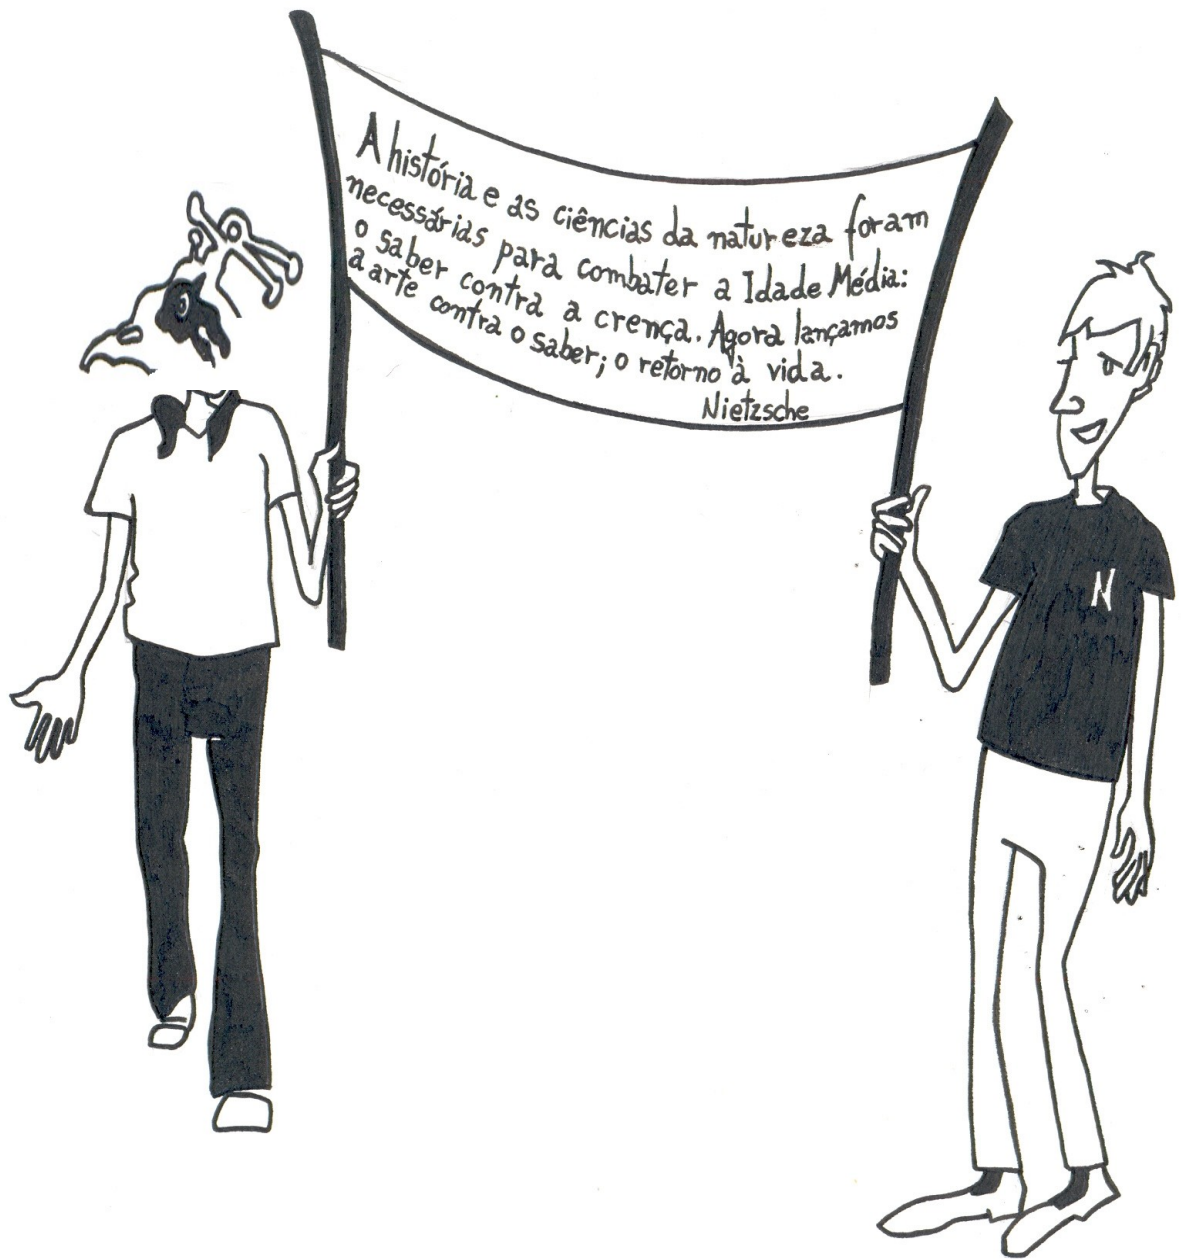 A história e as ciências da natureza foram
necessárias para combater a Idade Média:
o saber contra a crença. Agora lançamos
a arte contra o saber; o retorno à vida.
Nietzsche
N